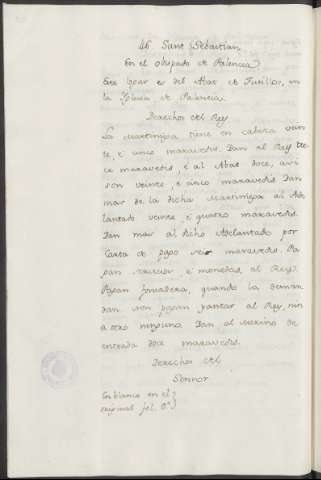 46 Sant Sebastian
En el obispado de Palencia
Este logar es del Abat de Fusillos, en
la Iglesia de Palencia.
Derechos del Rey
La Martiniega tiene en cabeza vein
te, é cinco maravedis. Dan al Rey tre
ce maravedis, é al Abat doce, assi
son veinte, é cinco maravedis. Dan
mas de la dicha Martiniega al Ade
lantado veinte, é quatro maravedis.
Dan mas al dicho Adelantado por
Carta de pago seis maravedis. Pa
gan servicios é monedas al Rey.
Pagan fonsadera, quando la deman
dan non pagan yantar al Rey, nin
á otro ninguno. Dan al Merino de
entrada doce maravedis.
Derechos del
Sennor
En blanco en el
original fol. 8º